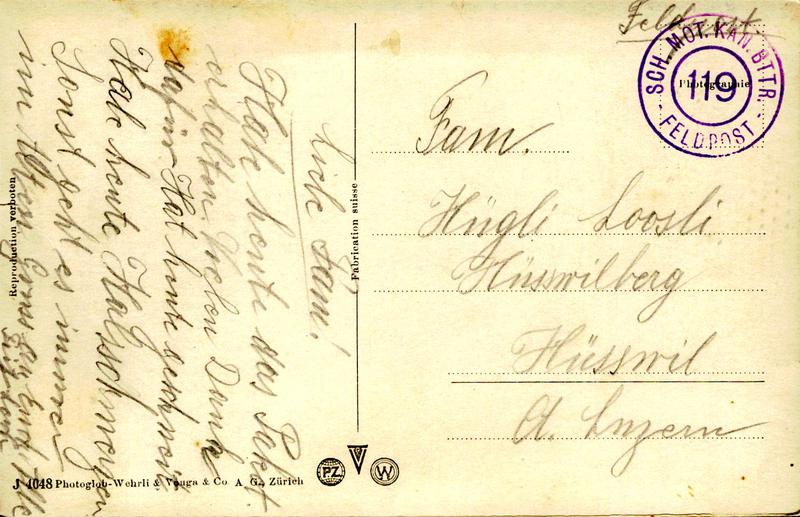 Feldpost
SCH. MOT. KAN. BTTR.
119
FELDPOST
Photographie
Fam.
Hügli Loosli
Hüsswilberg
Hüsswil
Luzern
Liebe Fam!
Habe heute das Paket
erhalten Vielen Dank
dafür Hat heute
Habe heute Halsschmerzen
Sonst geht es immer
im Alten
Reproduction verboten.
Fabrication suisse
J 4048 Photoglob-Wehrli & Vouga & Co A. G., Zürich
PZ
V
W